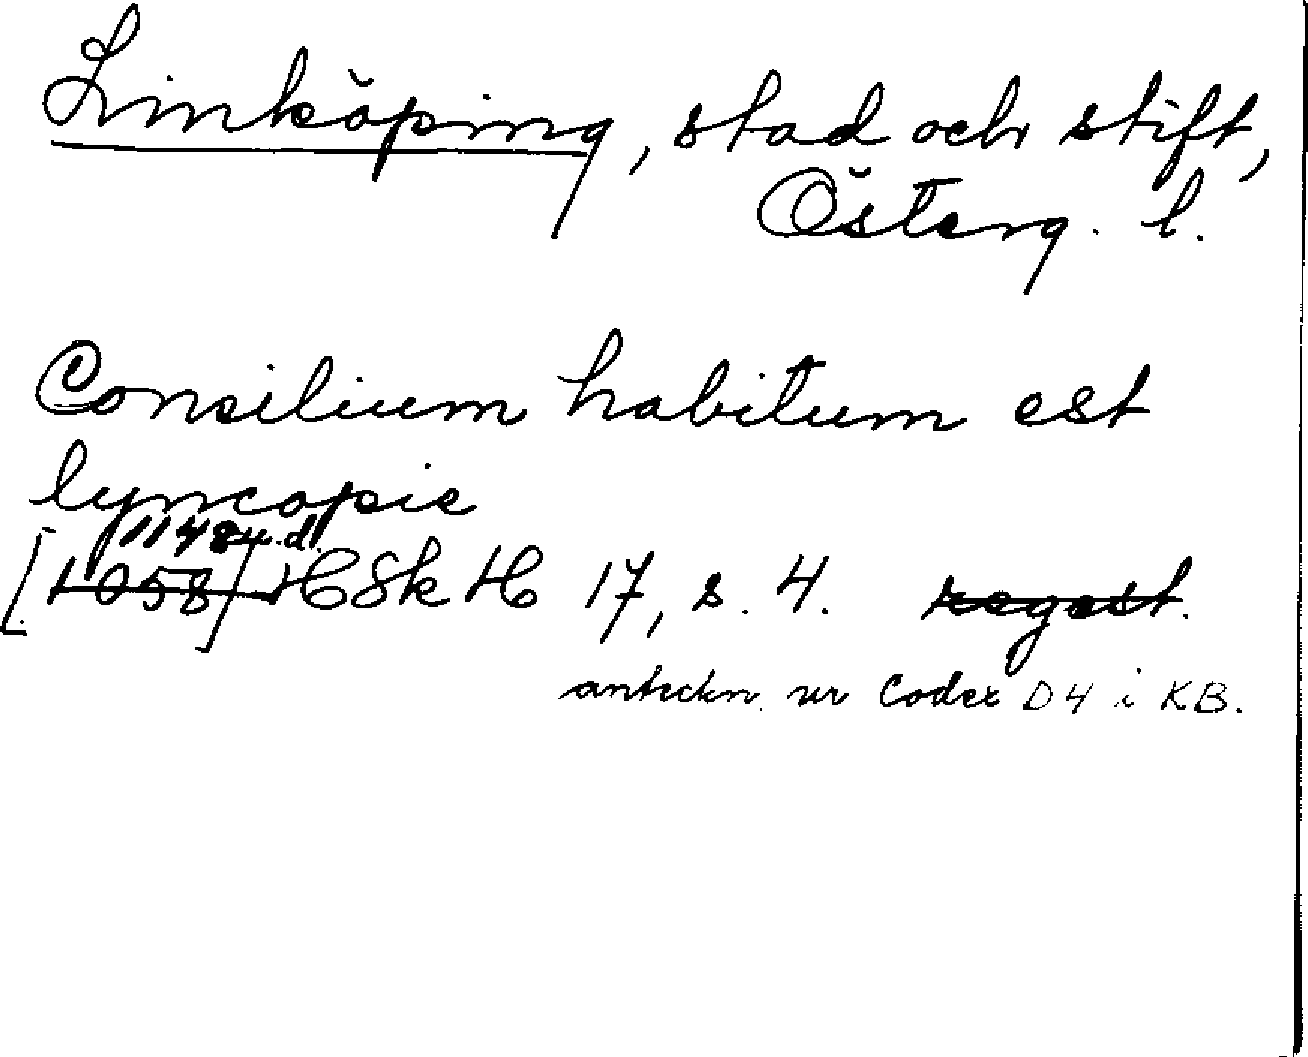 Linköping, stad och stift,
Österg. l.
Consilium habitum est
lyncopie
[1058] HSkH 17, s. 4. regest.
anteckn. ur Codex D4 i KB.